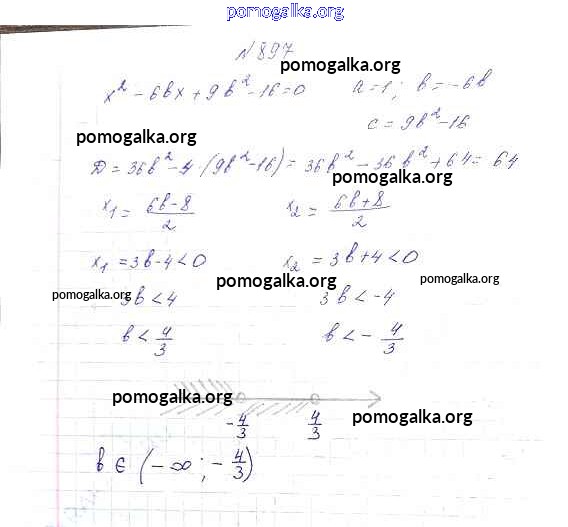 pomogalka.org
N 897
pomogalka.org
x² - 6bx + 9b² - 16 = 0   a = 1; b = -6b
c = 9b² - 16
pomogalka.org
D = 36b² - 4·(9b² - 16) = 36b² - 36b² + 64 = 64
x₁ = (6b - 8)/2   x₂ = (6b + 8)/2
pomogalka.org
x₁ = 3b - 4 < 0   x₂ = 3b + 4 < 0
pomogalka.org   pomogalka.org
pomogalka.org
3b < 4   3b < -4
b < 4/3   b < -4/3
pomogalka.org
pomogalka.org
-4/3   4/3
b ∈ (-∞; -4/3)